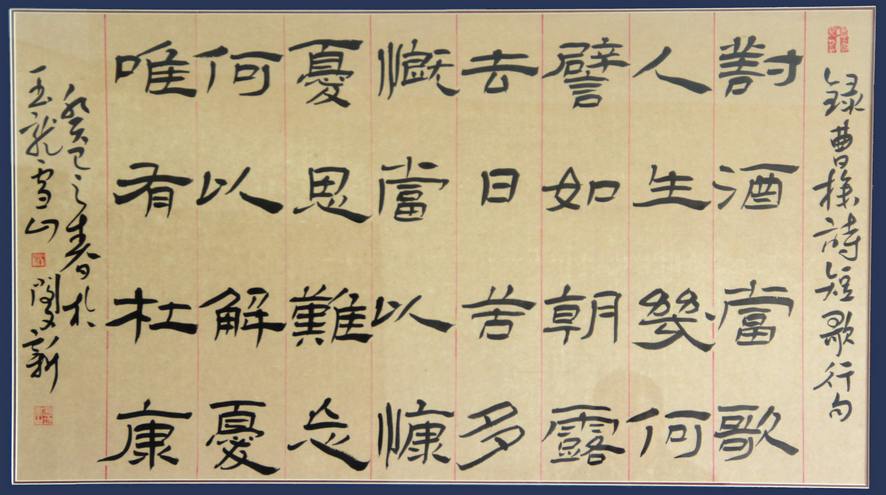 録曹操詩短歌行句
對酒當歌
人生幾何
譬如朝露
去日苦多
慨當以慷
憂思難忘
何以解憂
唯有杜康
癸巳之春於
玉龍雪山
閆文新